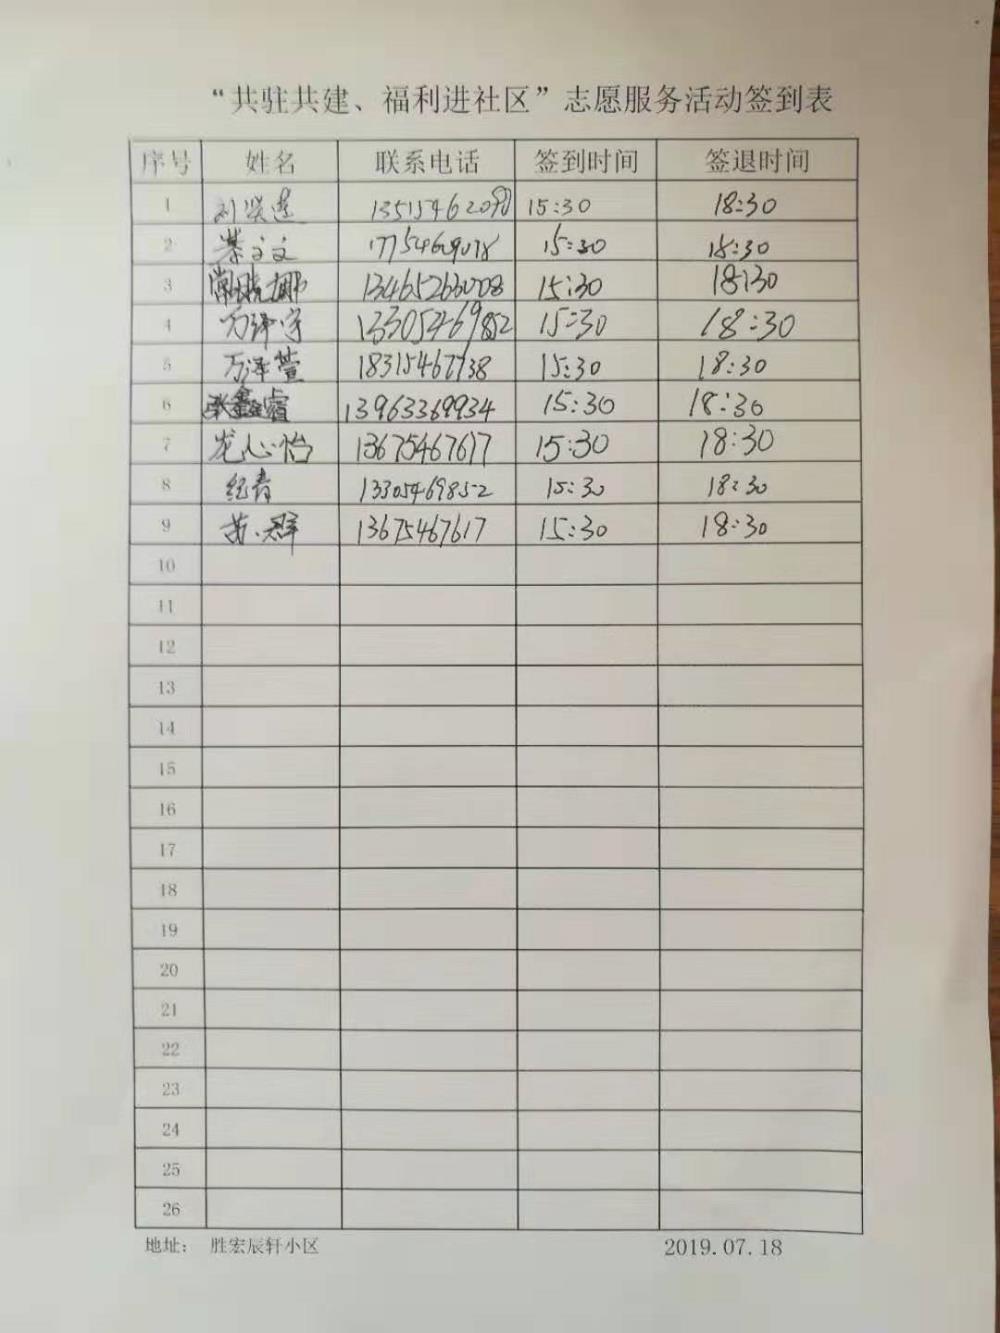 “共驻共建、福利进社区”志愿服务活动签到表
序号 姓名 联系电话 签到时间 签退时间
1 刘 15:30 18:30
2 文文 17754609078 15:30 18:30
3 常晓娜 13465263008 15:30 18:30
4 万泽宇 13305469852 15:30 18:30
5 万泽萱 18315467738 15:30 18:30
6 张鑫睿 13963369934 15:30 18:30
7 龙心怡 13675467617 15:30 18:30
8 纪青 13305469852 15:30 18:30
9 苗 13675467617 15:30 18:30
10
11
12
13
14
15
16
17
18
19
20
21
22
23
24
25
26
地址： 胜宏辰轩小区 2019.07.18